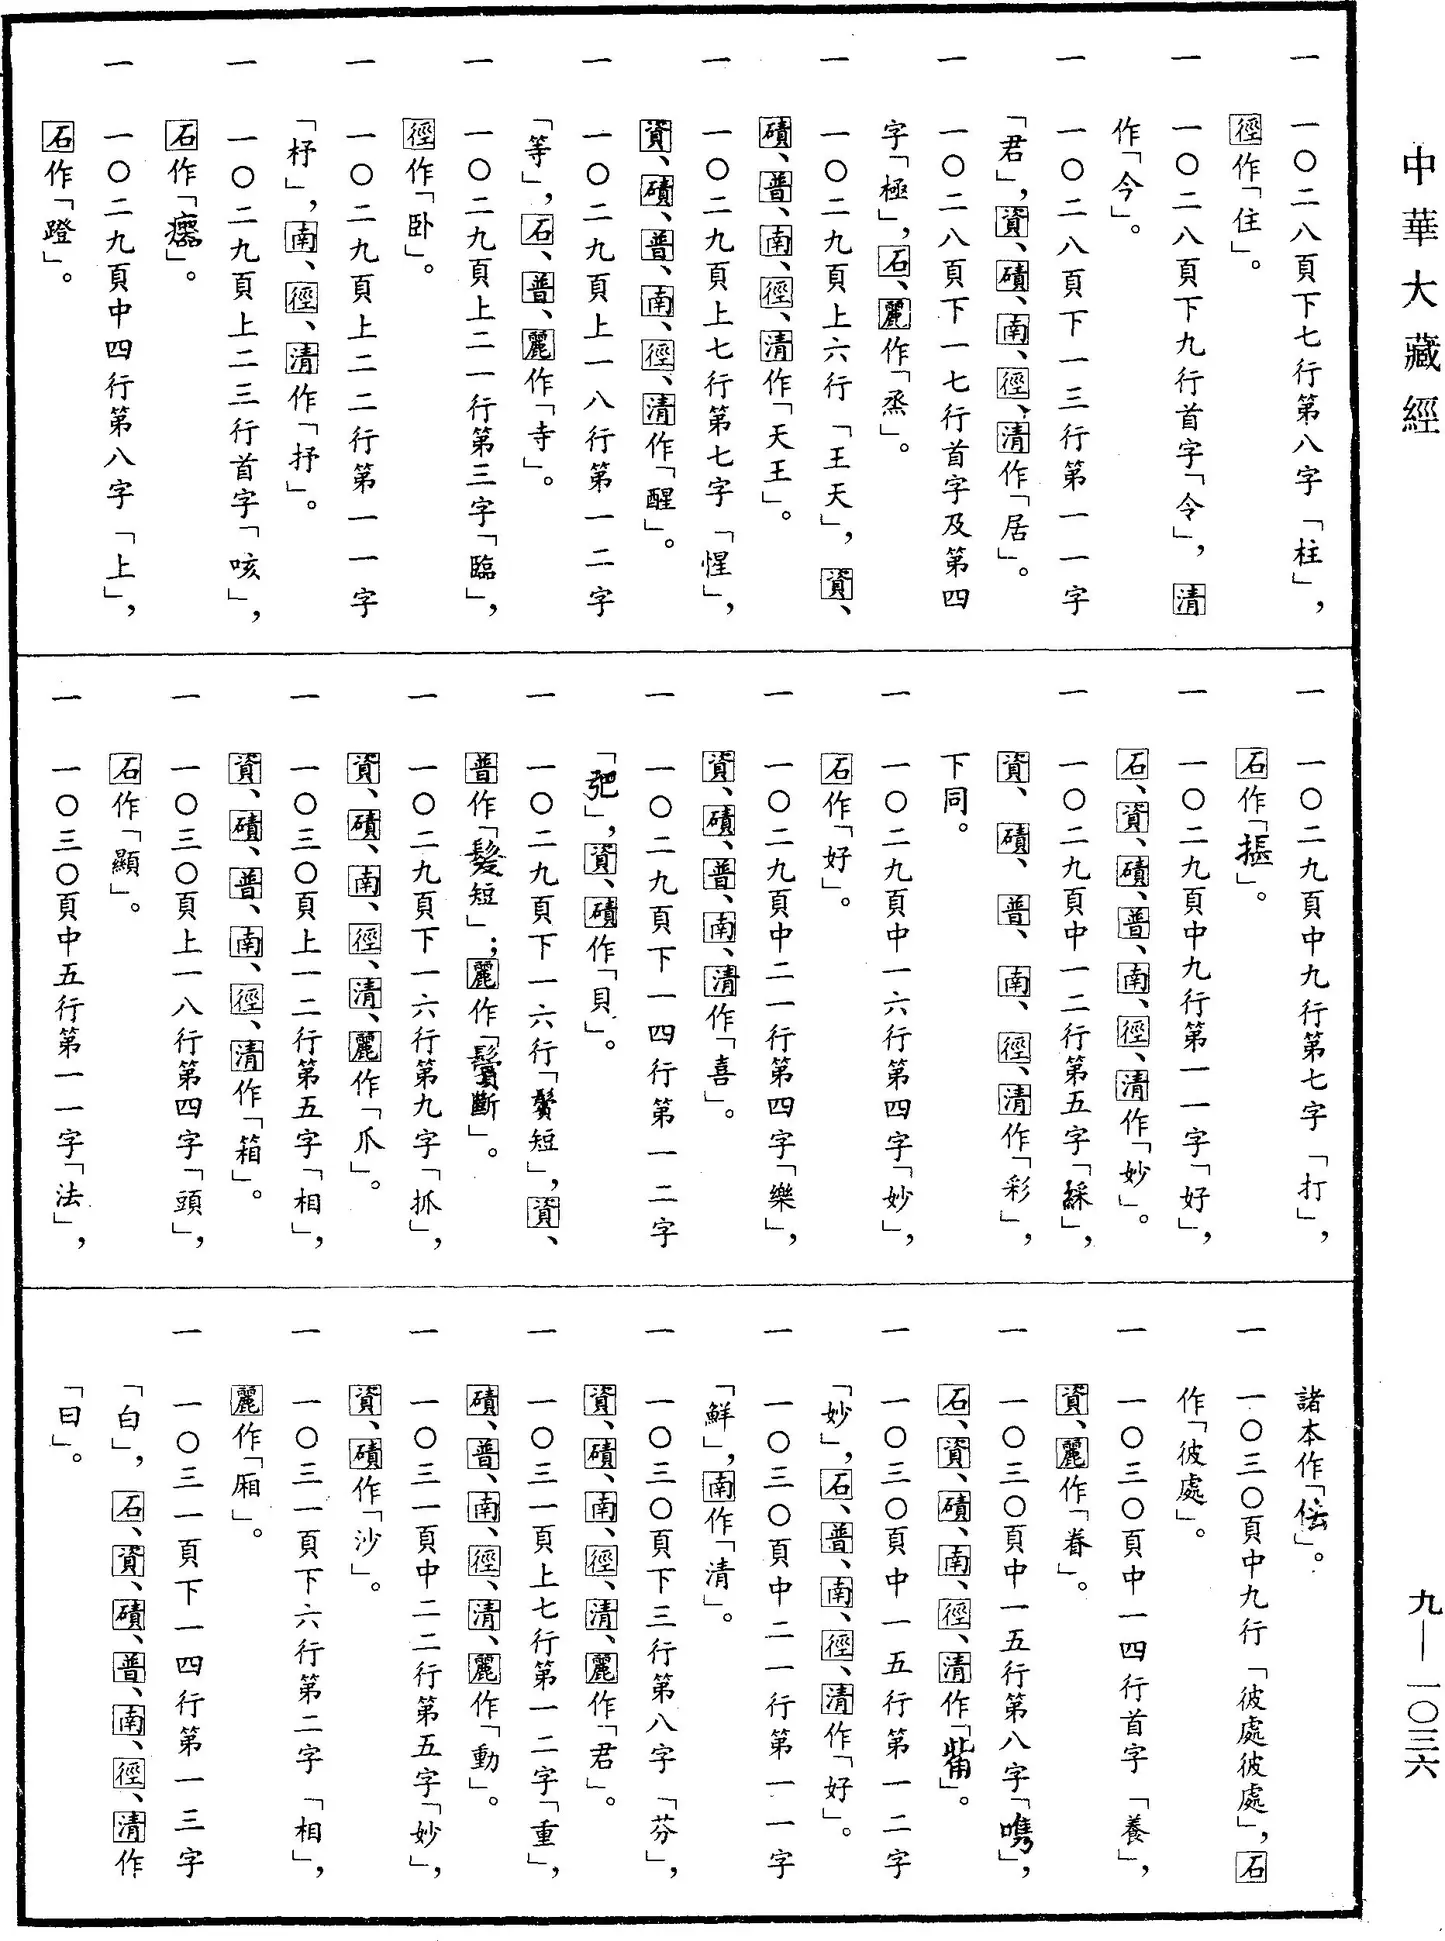 中華大藏經
一 一〇二八頁下七行第八字「柱」，
徑作「住」。
一 一〇二八頁下九行首字「令」，清
作「今」。
一 一〇二八頁下一三行第一一字
「君」，資、磧、南、徑、清作「居」。
一 一〇二八頁下一七行首字及第四
字「極」，石、麗作「烝」。
一 一〇二九頁上六行「王天」，資、
磧、普、南、徑、清作「天王」。
一 一〇二九頁上七行第七字「惺」，
資、磧、普、南、徑、清作「醒」。
一 一〇二九頁上一八行第一二字
「等」，石、普、麗作「寺」。
一 一〇二九頁上二一行第三字「臨」，
徑作「卧」。
一 一〇二九頁上二二行第一一字
「杼」，南、徑、清作「抒」。
一 一〇二九頁上二三行首字「咳」，
石作「」。
一 一〇二九頁中四行第八字「上」，
石作「蹬」。
一 一〇二九頁中九行第七字「打」，
石作「振」。
一 一〇二九頁中九行第一一字「好」，
石、資、磧、普、南、徑、清作「妙」。
一 一〇二九頁中一二行第五字「綵」，
資、磧、普、南、徑、清作「彩」，
下同。
一 一〇二九頁中一六行第四字「妙」，
石作「好」。
一 一〇二九頁中二一行第四字「樂」，
資、磧、普、南、清作「喜」。
一 一〇二九頁下一四行第一二字
「」，資、磧作「貝」。
一 一〇二九頁下一六行「鬢短」，資、
普作「髮短」；麗作「鬢斷」。
一 一〇二九頁下一六行第九字「抓」，
資、磧、南、徑、清、麗作「爪」。
一 一〇三〇頁上一二行第五字「相」，
資、磧、普、南、徑、清作「箱」。
一 一〇三〇頁上一八行第四字「頭」，
石作「顯」。
一 一〇三〇頁中五行第一一字「法」，
諸本作「」。
一 一〇三〇頁中九行「彼處彼處」，石
作「彼處」。
一 一〇三〇頁中一四行首字「養」，
資、麗作「眷」。
一 一〇三〇頁中一五行第八字「」，
石、資、磧、南、徑、清作「」。
一 一〇三〇頁中一五行第一二字
「妙」，石、普、南、徑、清作「好」。
一 一〇三〇頁中二一行第一一字
「鮮」，南作「清」。
一 一〇三〇頁下三行第八字「芬」，
資、磧、南、徑、清、麗作「君」。
一 一〇三一頁上七行第一二字「重」，
磧、普、南、徑、清、麗作「動」。
一 一〇三一頁中二二行第五字「妙」，
資、磧作「沙」。
一 一〇三一頁下六行第二字「相」，
麗作「厢」。
一 一〇三一頁下一四行第一三字
「白」，石、資、磧、普、南、徑、清作
「曰」。
九—一〇三六